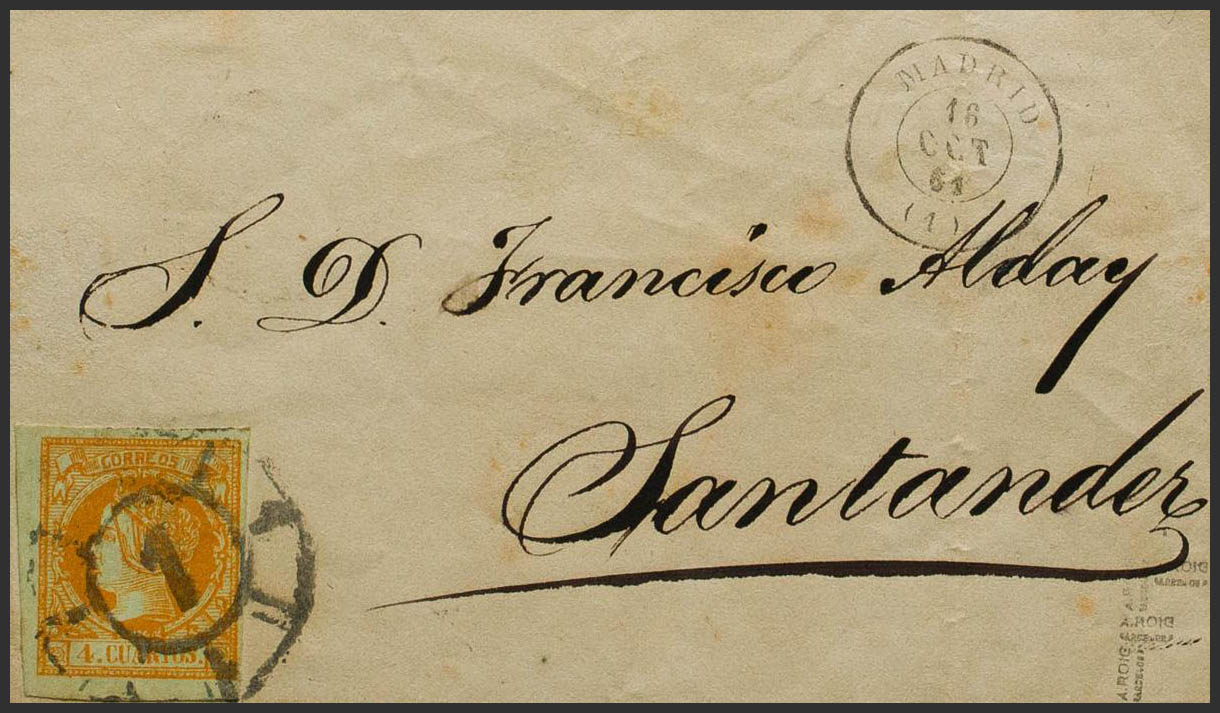 MADRID
16
OCT
61
(1)
S. D. Francisco Alday
Santander
CORREOS
1
4. CUARTOS.
A.ROIG
BARCELONA
A.ROIG